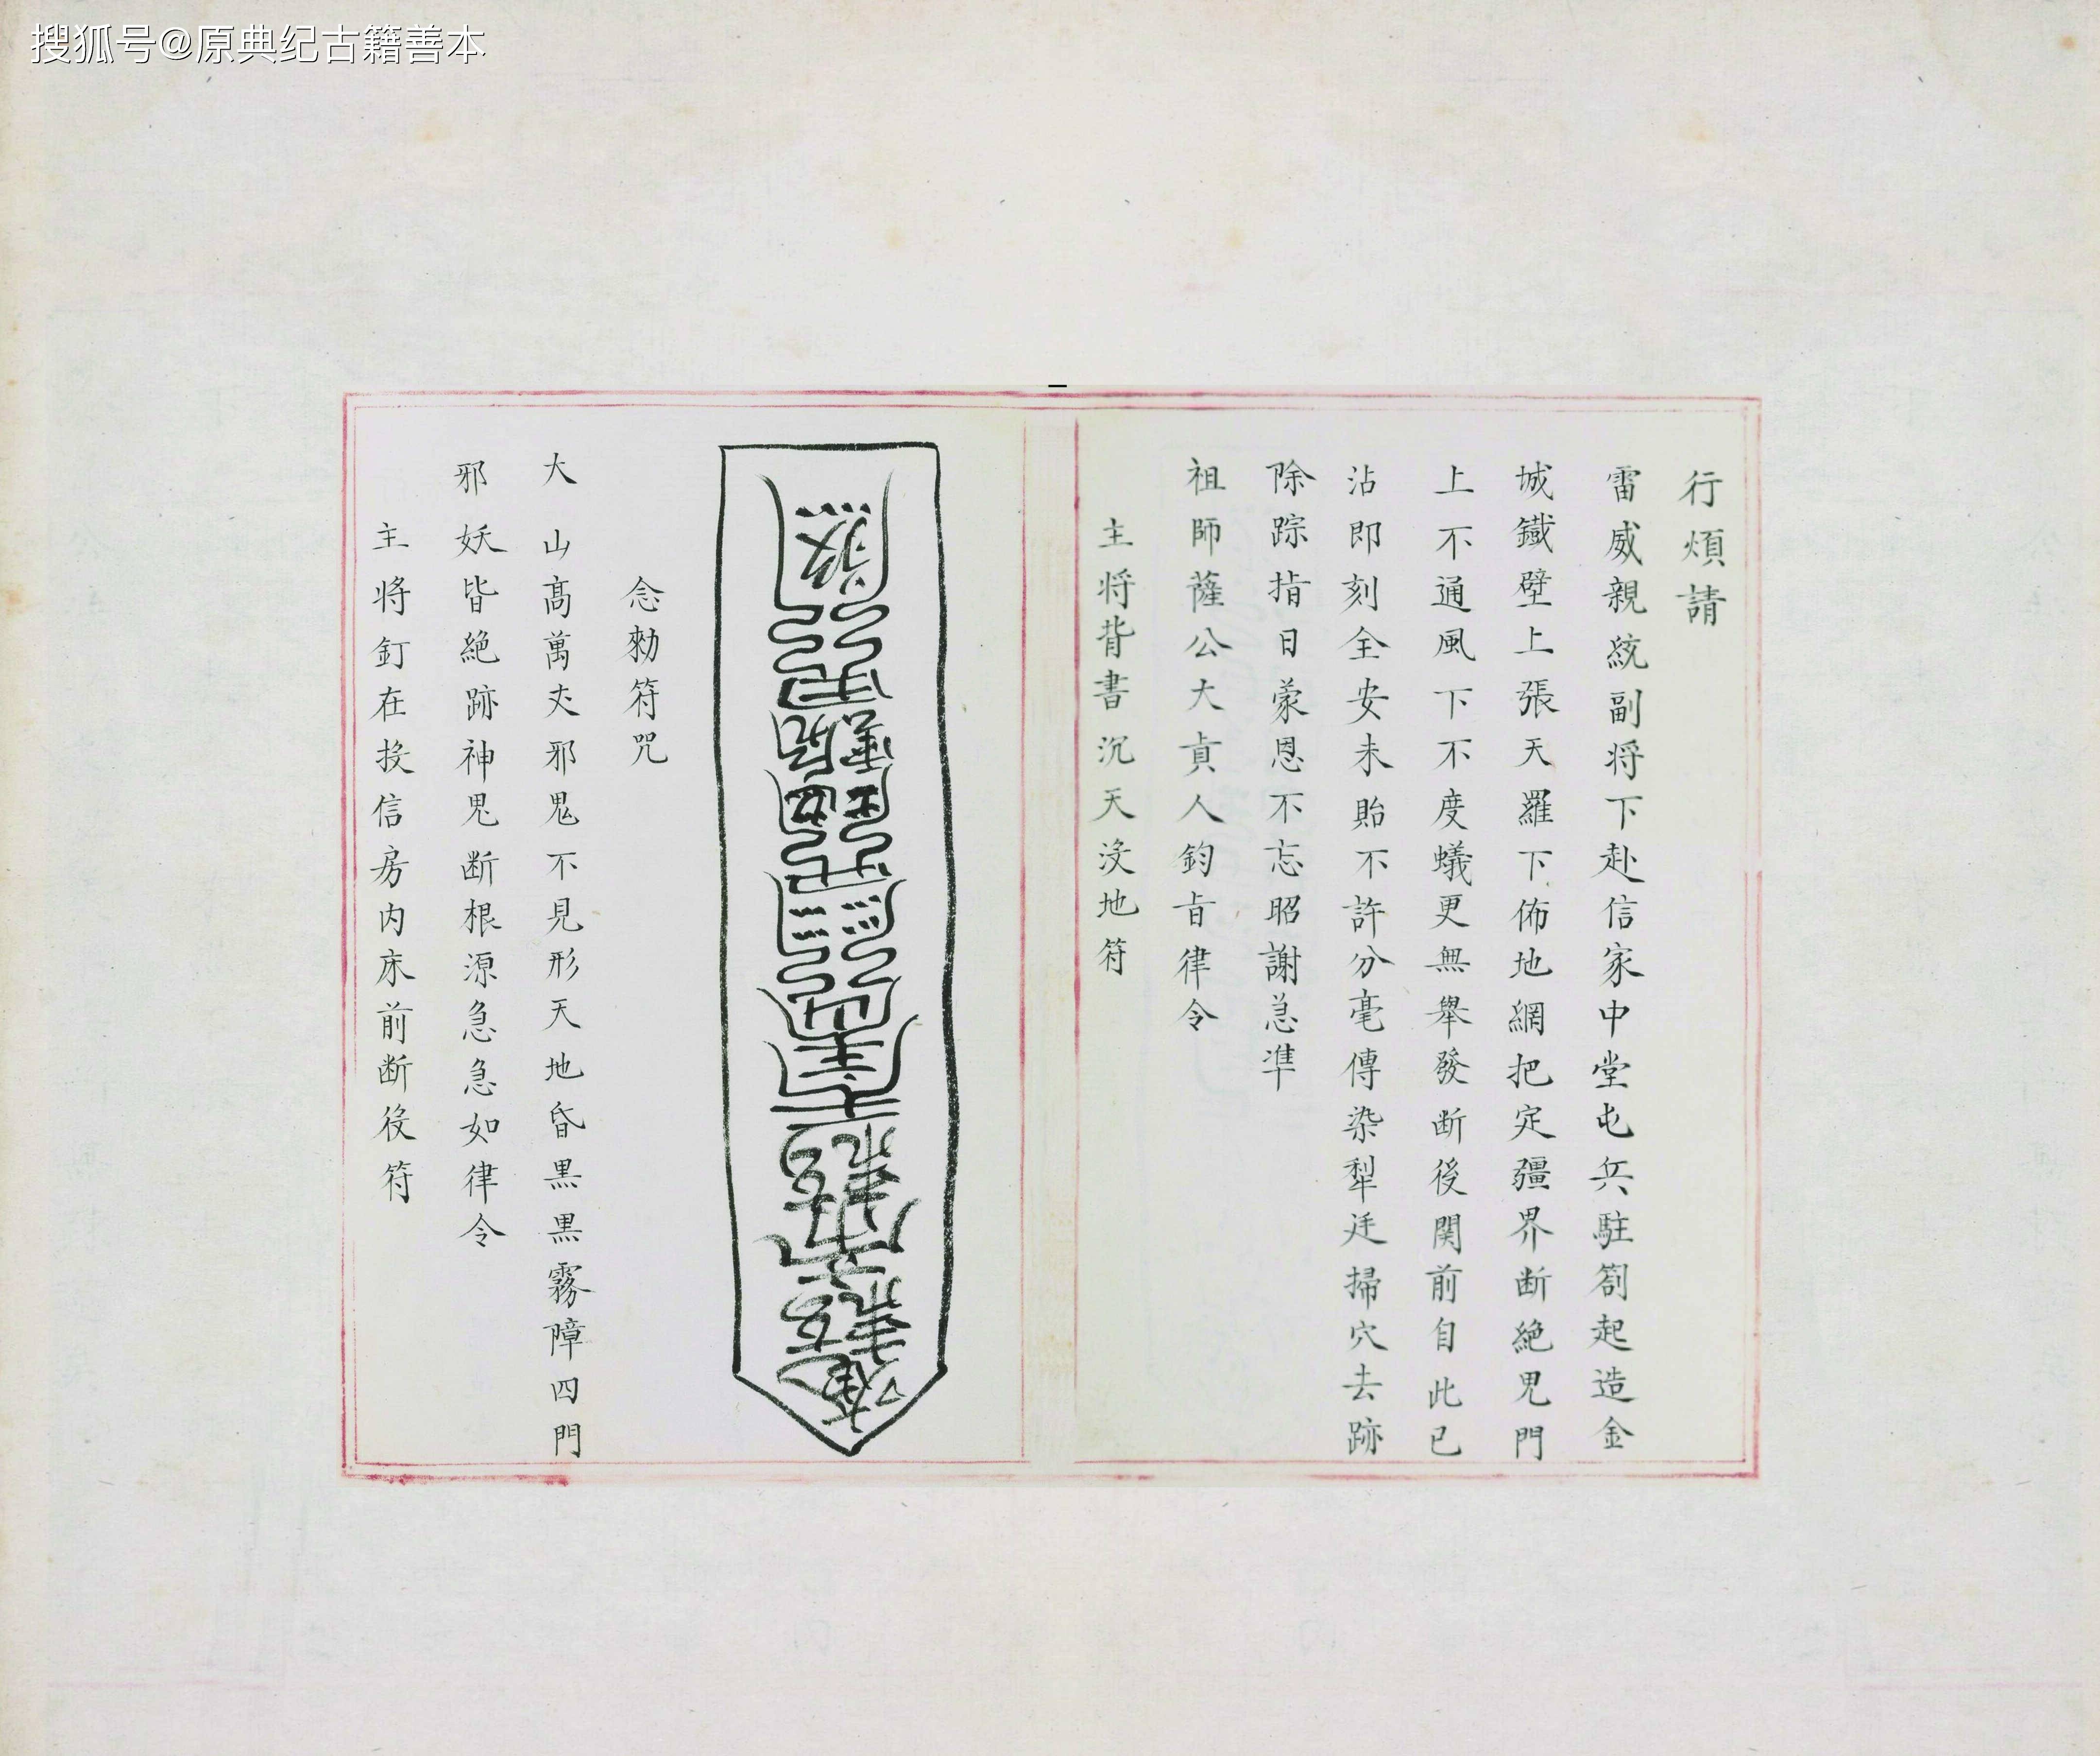 搜狐号@原典纪古籍善本
行煩請
雷威親統副将下赴信家中堂屯兵駐劄起造金
城鐵壁上張天羅下佈地網把定疆界断絶児門
上不通風下不度蟻更無舉發断後関前自此已
沾即刻全安未貽不許分毫傳染犁廷掃穴去跡
除踪指日蒙恩不忘昭謝急準
祖師薩公大真人鈞旨律令
主将背書沉天沒地符
念勅符咒
大山髙萬丈邪鬼不見形天地昏黒黒霧障四門
邪妖皆絶跡神児断根源急急如律令
主将釘在投信房内床前断後符